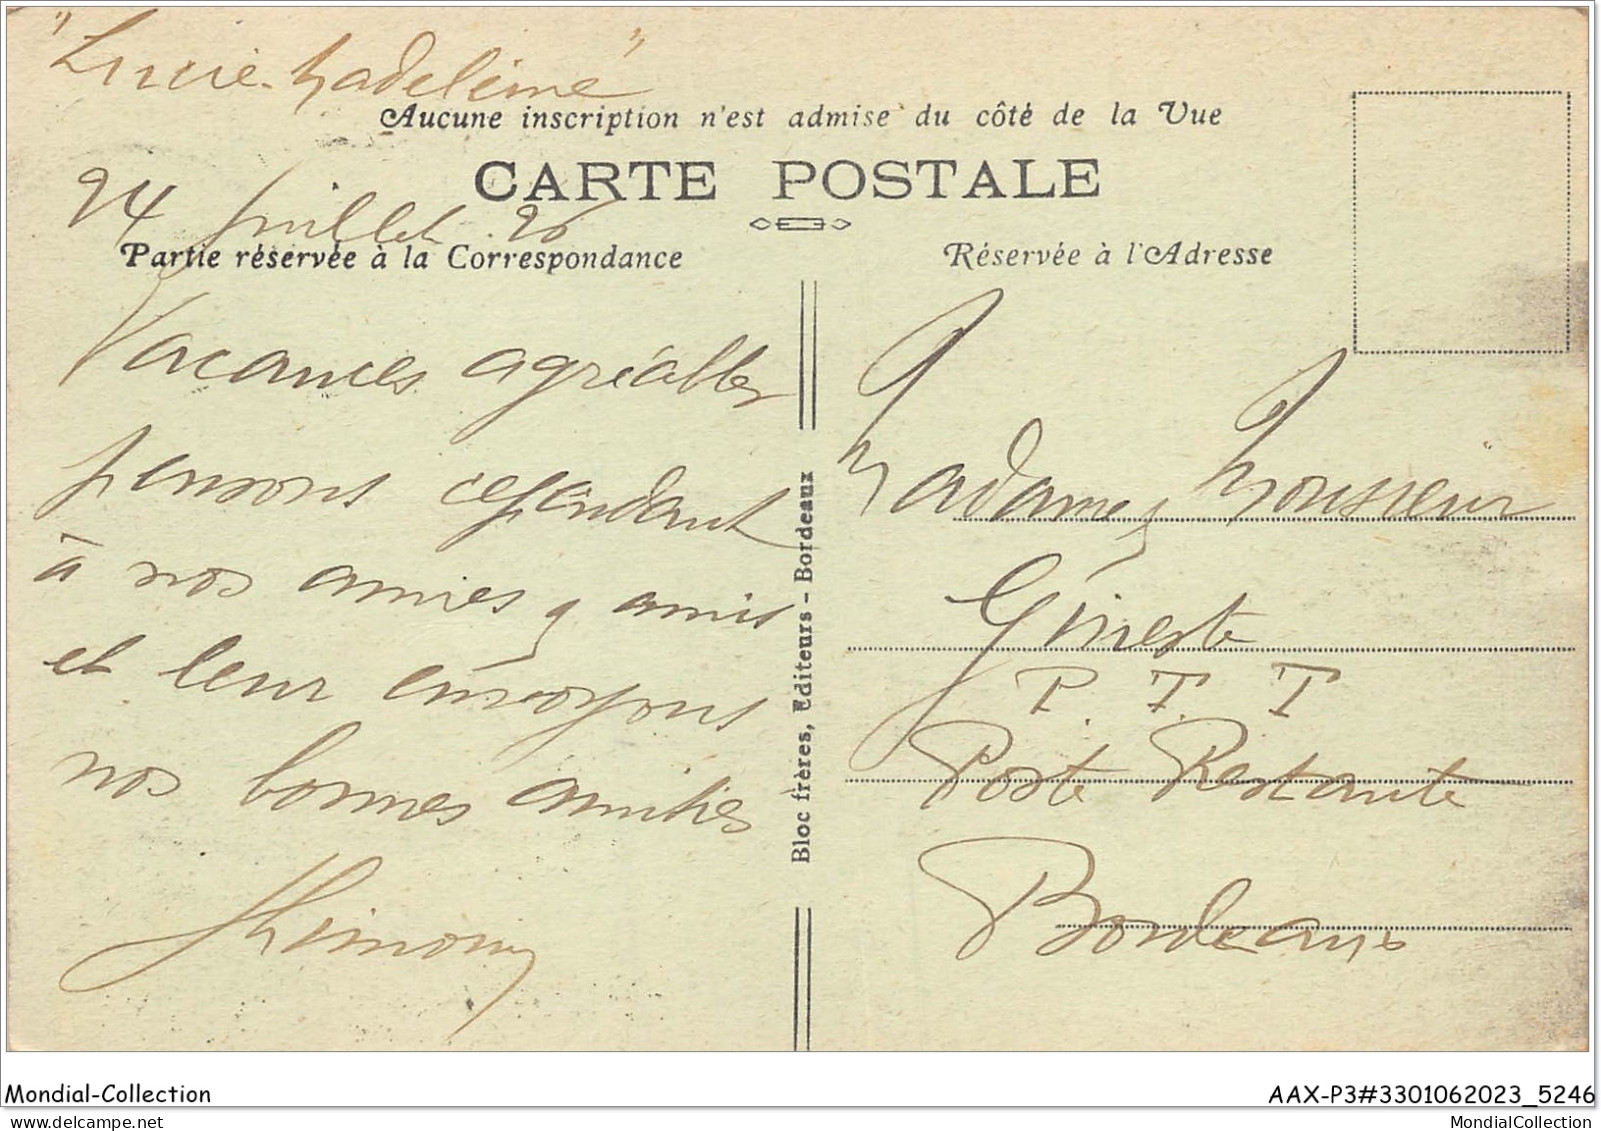 "Lucie-Madeleine"
Aucune inscription n'est admise du côté de la Vue
CARTE POSTALE
24 Juillet 26
Partie réservée à la Correspondance
Réservée à l'Adresse
Vacances agréables
pensons cependant
à nos amies, amis
et leur envoyons
nos bonnes amitiés
Bloc frères, Editeurs - Bordeaux
Madame, Monsieur
Gineste
P. T. T
Poste Restante
Bordeaux
Mondial-Collection
AAX-P3#3301062023_5246
www.delcampe.net
MondialCollection